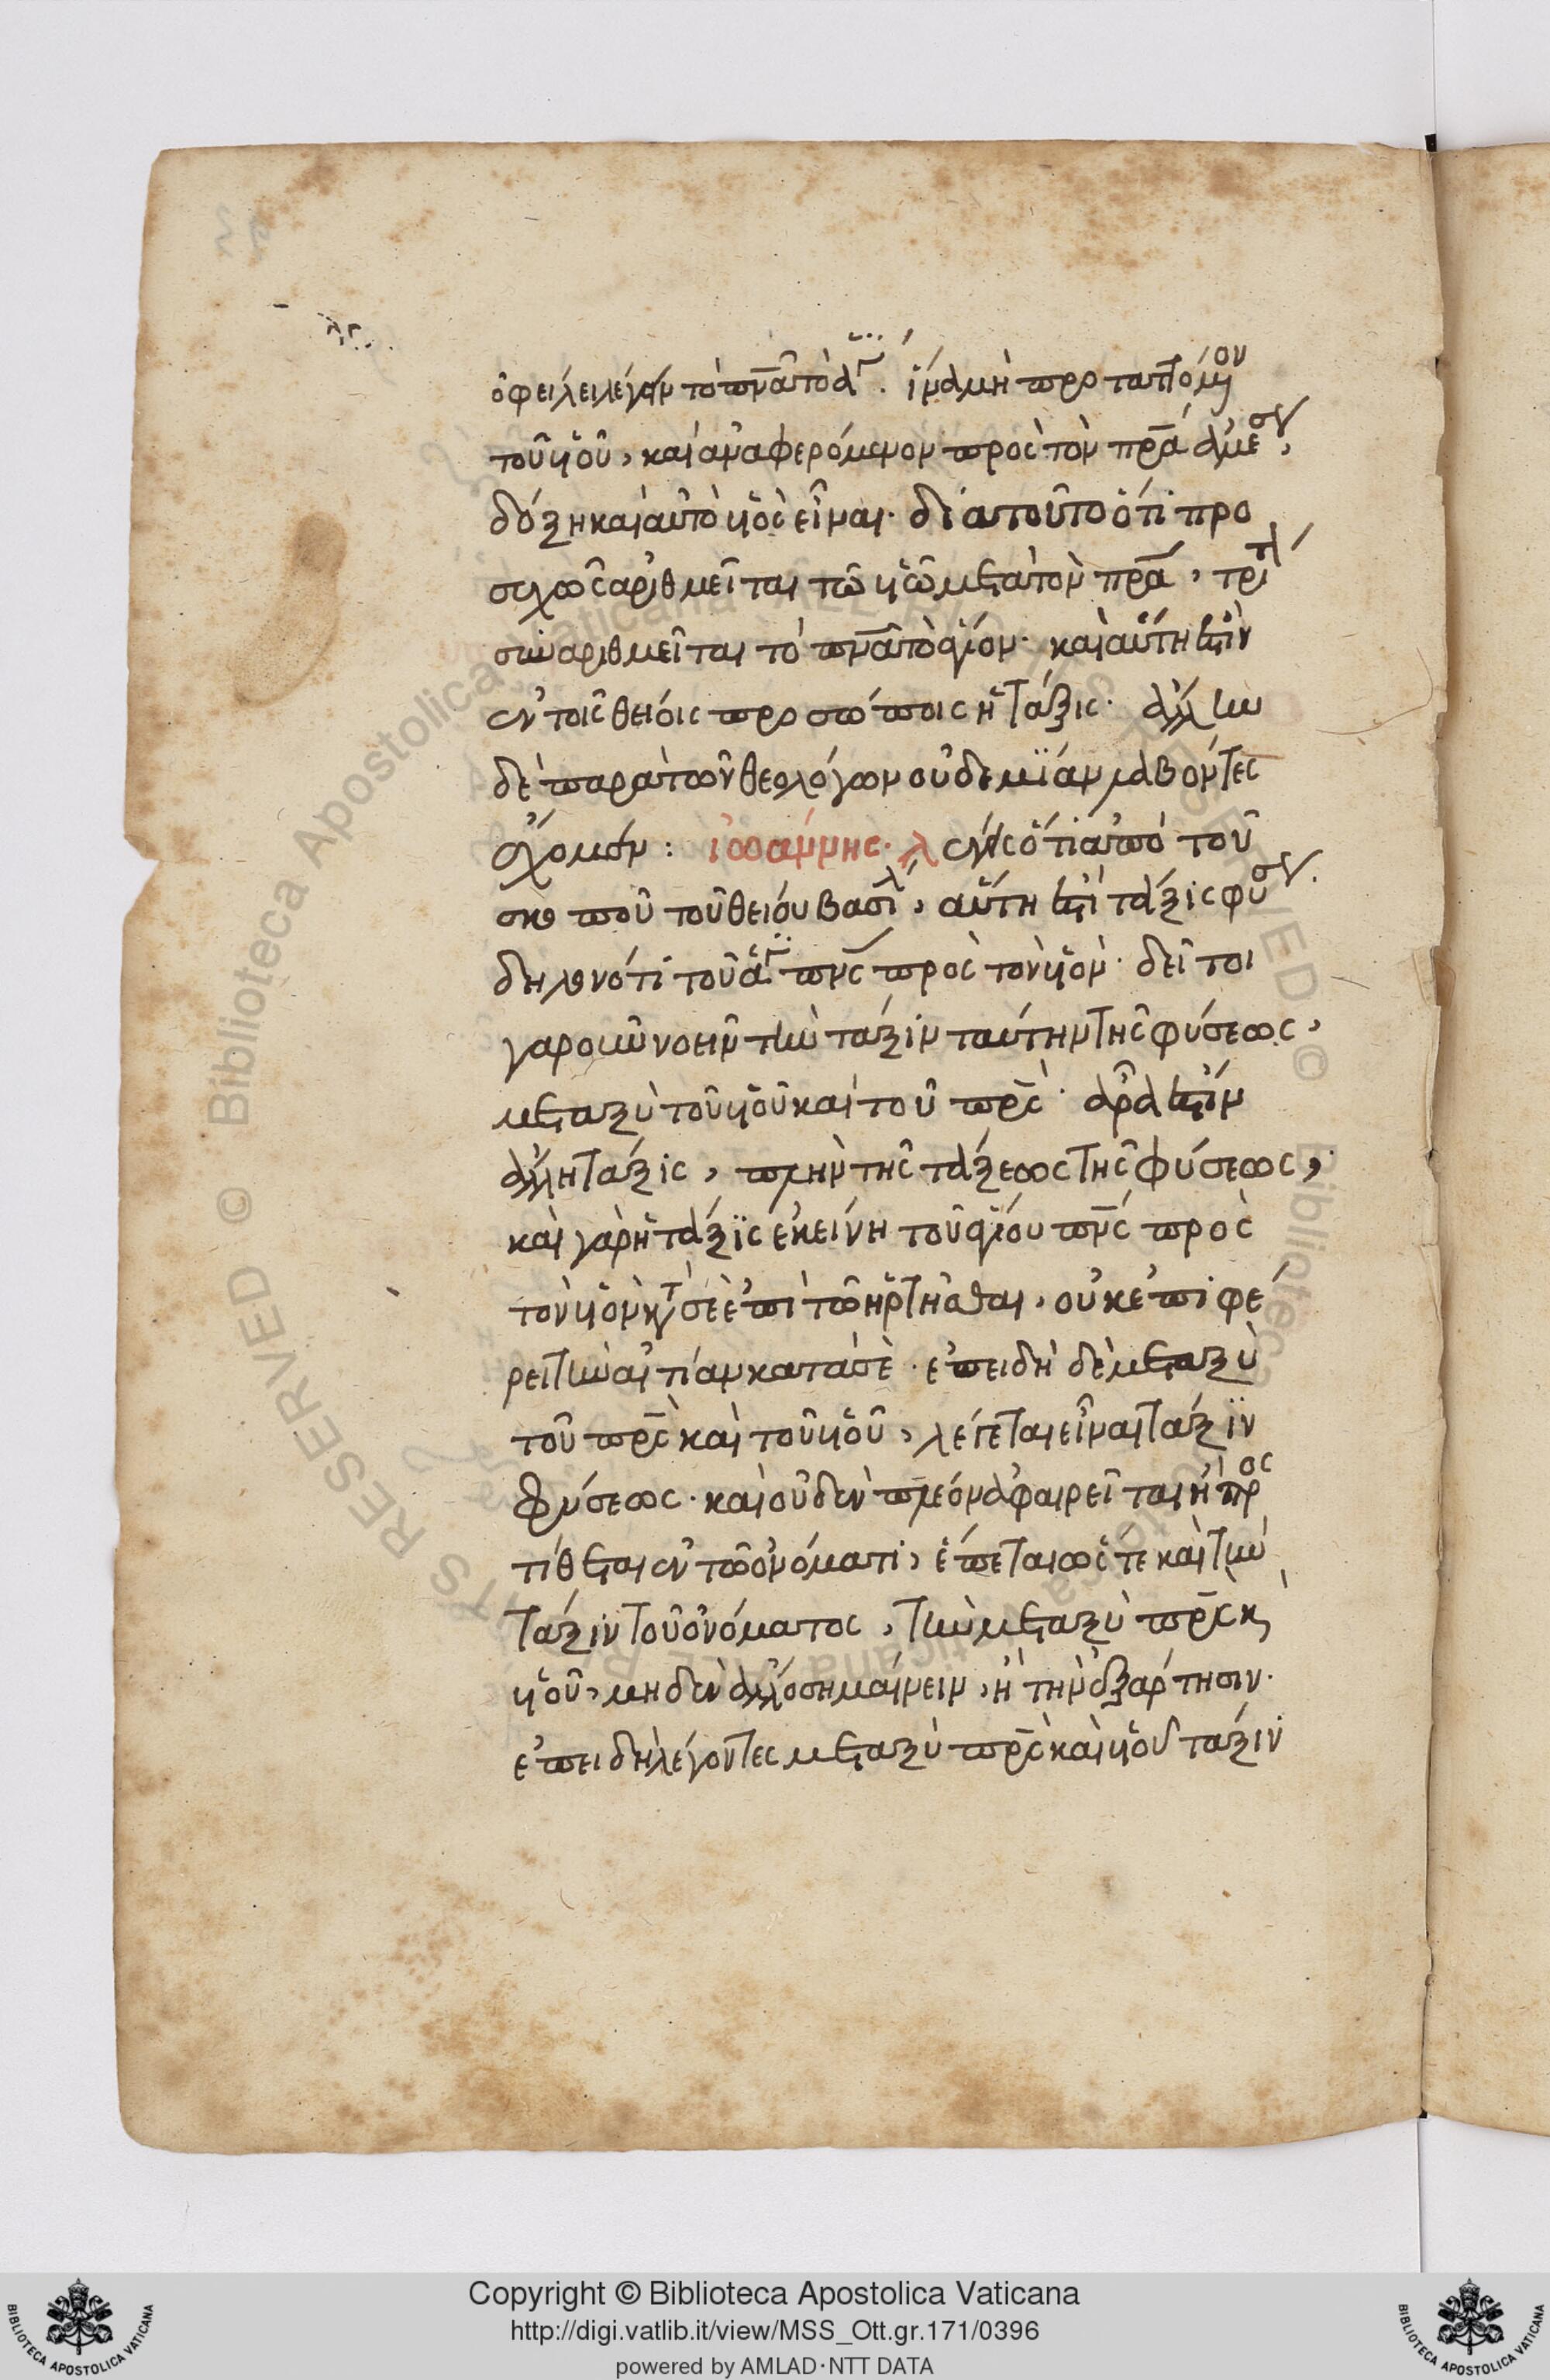 ὀφείλει λέγειν τὸ πνᾶ τὸ ἅγ. ἵνα μὴ προταττόμενον
τοῦ υἱοῦ, καὶ ἀναφερόμενον πρὸς τὸν πρᾶ ἀμέσως,
δόξη καὶ αὐτὸ υἱὸς εἶναι. διατοῦτο ὅτι προ
σεχῶς ἀριθμεῖται τῶ υἱῶ μετὰ τὸν πρᾶ, τρί
συναριθμεῖται τὸ πνᾶ τὸ ἅγιον. καὶ αὕτη ἐστὶν
ἐν τοῖς θείοις προσώποις ἡ τάξις. ἄλλην
δὲ παρὰ τῶν θεολόγων οὐδεμΐαν λαβόντες
ἔχομεν: ἰωάννης. λέγεις ὅτι ἀπὸ τοῦ
σκοποῦ τοῦ θείου βασιλ, αὕτη ἐστὶ τάξις φύσεως.
δηλονότι τοῦ ἁγ πνς πρὸς τὸν υἱόν. δεῖ τοι
γαροῦν νοεῖν τὴν τάξιν ταύτην τῆς φύσεως,
μεταξὺ τοῦ υἱοῦ καὶ τοῦ πρς. ἆρα ἐστὶν
ἄλλη τάξις, πλὴν τῆς τάξεως τῆς φύσεως,
καὶ γὰρ ἡ τάξϊς ἐκείνη τοῦ ἁγίου πνς πρὸς
τὸν υἱὸν κατὰ σὲ ἐπὶ τῶ ἠρτῆσθαι, οὐκ ἐπιφέ
ρει τὴν αἰτίαν κατὰ σὲ. ἐπειδὴ δὲ μεταξὺ
τοῦ πρς καὶ τοῦ υἱοῦ, λέγεται εἶναι τάξϊν
φύσεως. καὶ οὐδὲν πλέον ἀφαιρεῖται ἢ προς
τίθεται ἐν τῶ ὀνόματι, ἕπεται ὥστε καὶ τὴν
τάξιν τοῦ ὀνόματος, τὴν μεταξὺ πρς κ
υἱοῦ, μηδὲν ἄλλο σημαίνειν, ἢ τὴν ἐξάρτησιν.
ἐπειδὴ λέγοντες μεταξὺ πρς καὶ υἱοῦ τάξιν
Copyright © Biblioteca Apostolica Vaticana
http://digi.vatlib.it/view/MSS_Ott.gr.171/0396
powered by AMLAD·NTT DATA